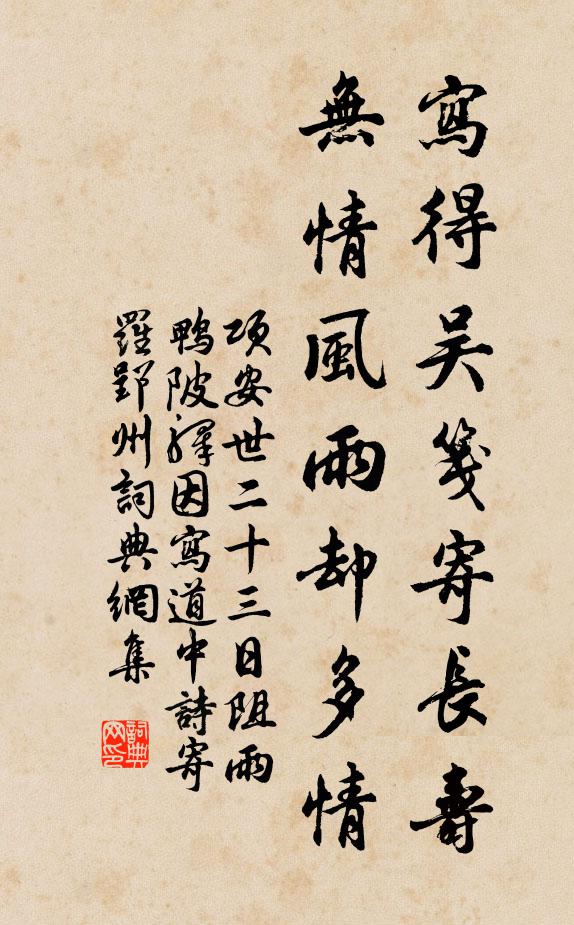 寫得吴箋寄長壽
無情風雨却多情
項安世二十三日阻雨
鴨陂驛因寫道中詩寄
羅郢州詞典網集
詞典網印